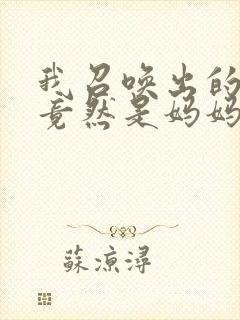 我召唤出的
竟然是妈妈
蘇涼潯